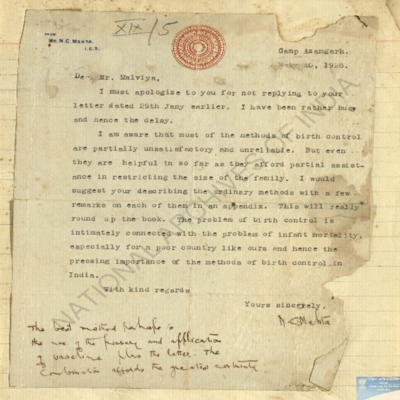 XIX/5
FROM
MR. N.C. MEHTA,
I.C.S.
Camp Azamgarh.
20, 1928.
De Mr. Malviya,
I must apologize to you for not replying to your
letter dated 29th Jany earlier. I have been rather busy
and hence the delay.
I am aware that most of the methods of birth control
are partially unsatisfactory and unreliable. But even
they are helpful in so far as they afford partial assist-
ance in restricting the size of the family. I would
suggest your describing the ordinary methods with a few
remarks on each of them in an appendix. This will really
round up the book. The problem of birth control is
intimately connected with the problem of infant mortality,
especially for a poor country like ours and hence the
pressing importance of the methods of birth control in
India.
With kind regards
Yours sincerely,
N C Mehta
The best method perhaps is
the use of the pessary and application
of vaseline plus the latter. The
combination affords the greatest certainty
NATIONAL ARCHIVES OF INDIA